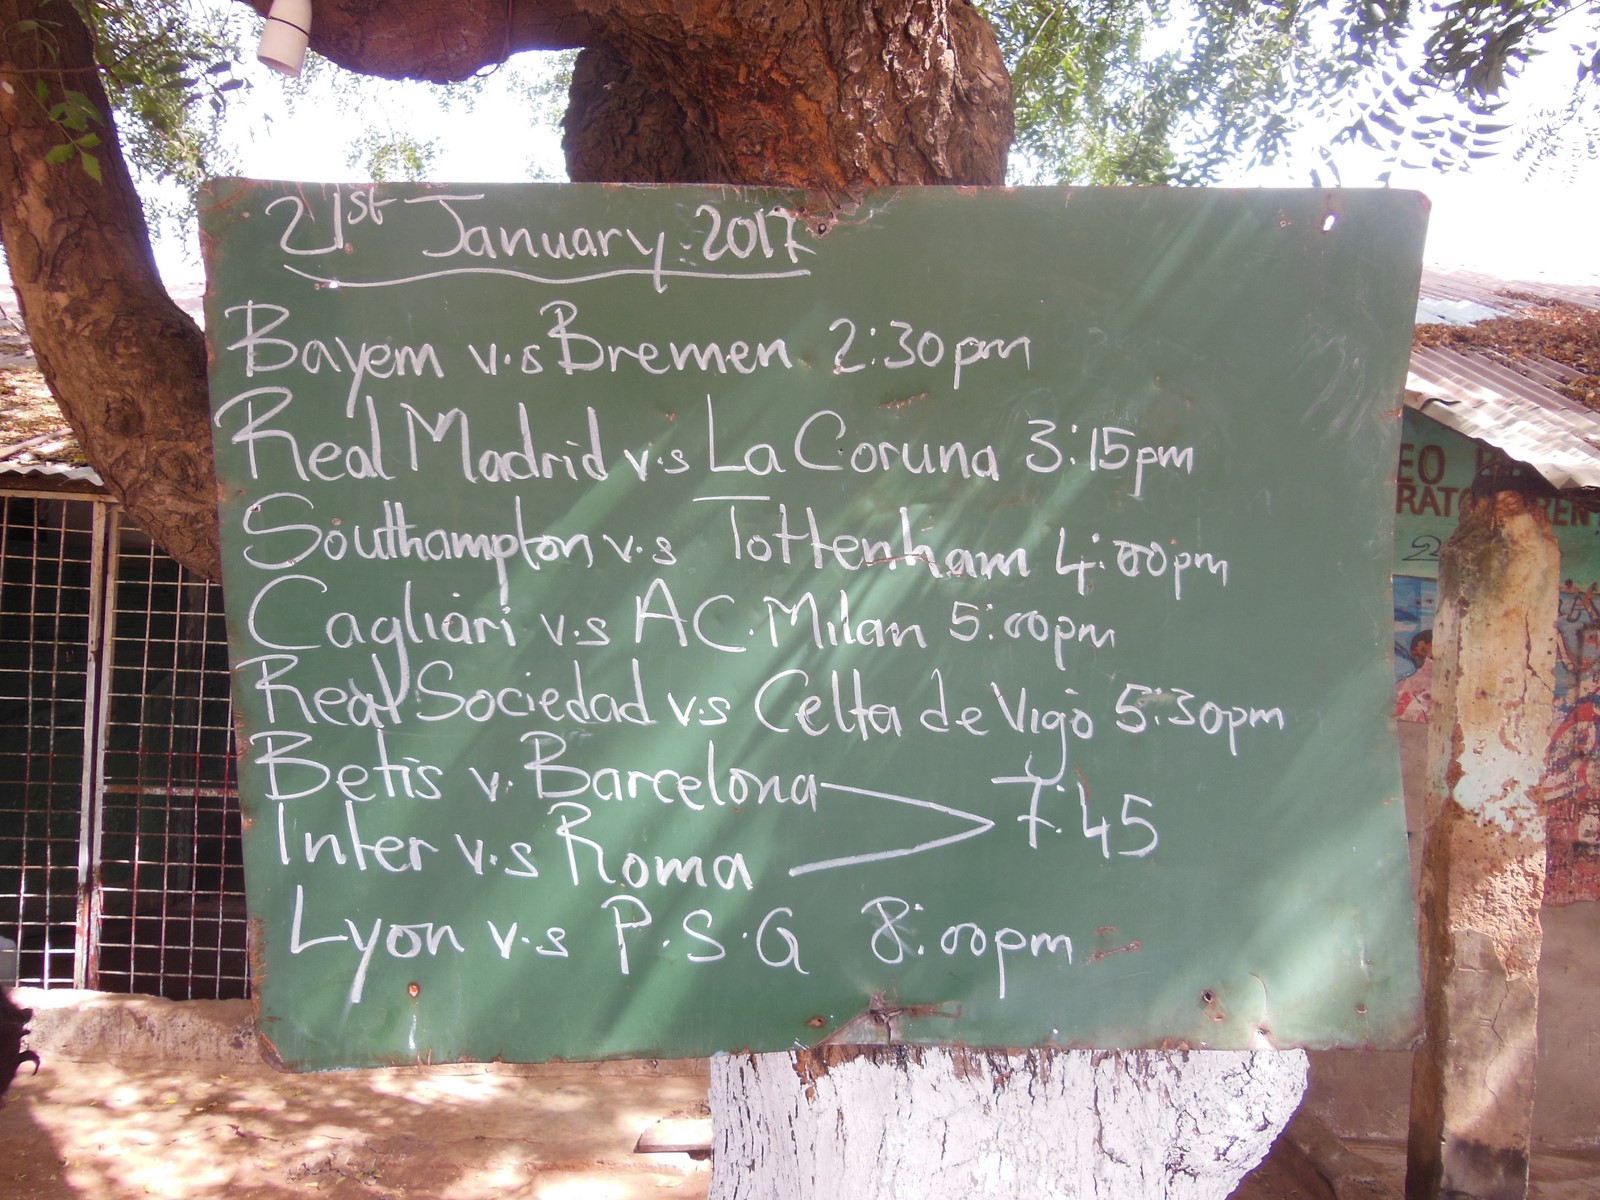 21st January 2017
Bayern v.s Bremen 2:30pm
Real Madrid v.s La Coruna 3:15pm
Southampton v.s Tottenham 4:00pm
Cagliari v.s AC.Milan 5:00pm
Real Sociedad v.s Celta de Vigo 5:30pm
Betis v. Barcelona
7:45
Inter v.s Roma
Lyon v.s P.S.G 8:00pm
EO
RATO
REN
2